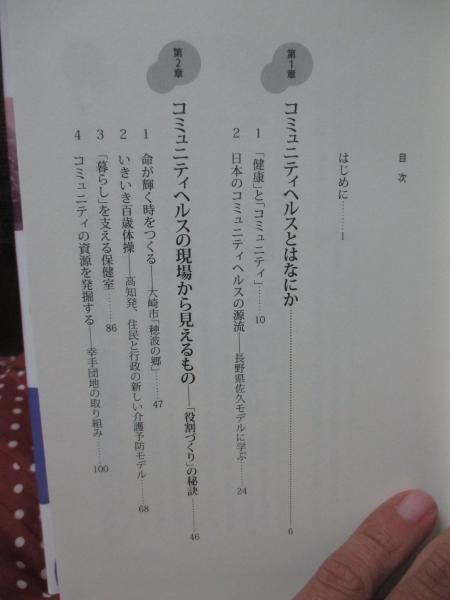 目次
はじめに………1
第1章
コミュニティヘルスとはなにか………6
1 「健康」と「コミュニティ」………10
2 日本のコミュニティヘルスの源流――長野県佐久モデルに学ぶ………24
第2章
コミュニティヘルスの現場から見えるもの――「役割づくり」の秘訣………46
1 命が輝く時をつくる――大崎市「穂波の郷」………47
2 いきいき百歳体操――高知発、住民と行政の新しい介護予防モデル………68
3 「暮らし」を支える保健室………86
4 コミュニティの資源を発掘する――幸手団地の取り組み………100